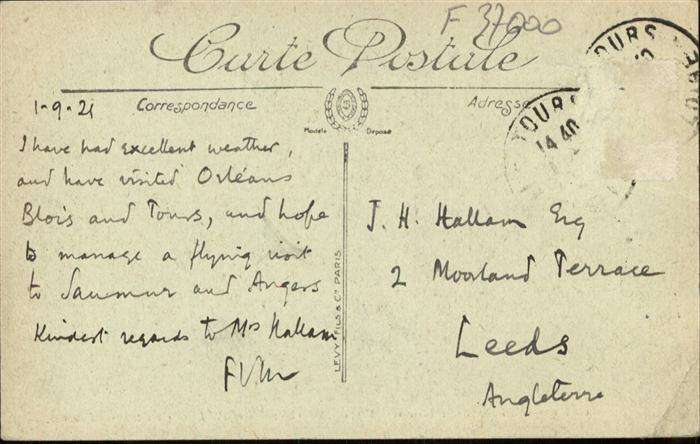 F 37000
Carte Postale
TOURS
TOURS
14 40
1-9-21
Correspondance
Adresse
Modèle Déposé
I have had excellent weather,
and have visited Orléans
Blois and Tours, and hope
to manage a flying visit
to Saumur and Angers
Kindest regards to Mrs Hallam
J. H. Hallam Esq
2 Moorland Terrace
Leeds
Angleterre
LEVY FILS & Cie PARIS